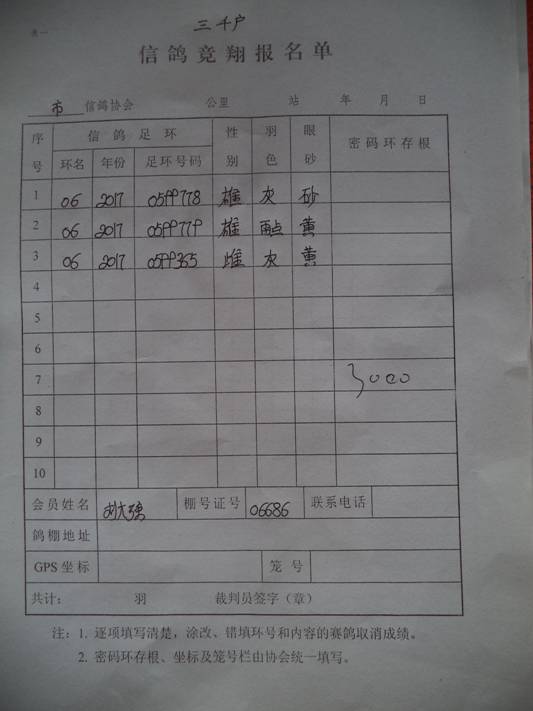 表一
三千户
信鸽竞翔报名单
市 信鸽协会 公里 站 年 月 日
序号 信鸽足环 性别 羽色 眼砂 密码环存根
环名 年份 足环号码
1 06 2017 0599778 雄 灰 砂
2 06 2017 0599779 雄 雨点 黄
3 06 2017 0599365 雌 灰 黄
4
5
6
7 3000
8
9
10
会员姓名 刘大强 棚号证号 06686 联系电话
鸽棚地址
GPS坐标 笼号
共计: 羽 裁判员签字（章）
注：1. 逐项填写清楚，涂改、错填环号和内容的赛鸽取消成绩。
2. 密码环存根、坐标及笼号栏由协会统一填写。